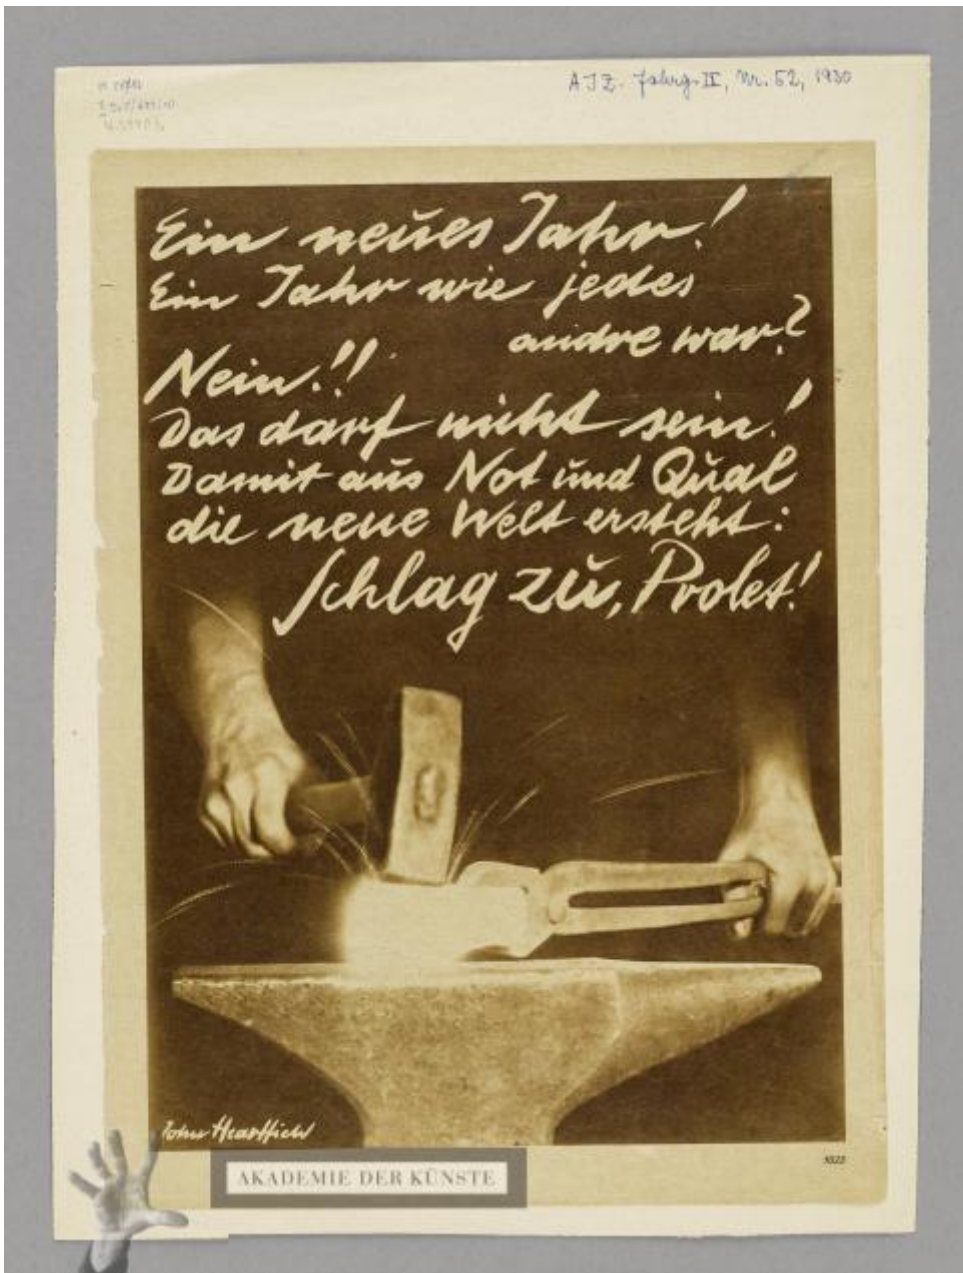 AJZ. Jahrg. IX, Nr. 52, 1930
Ein neues Jahr!
Ein Jahr wie jedes
andre war?
Nein!!
Das darf nicht sein!
Damit aus Not und Qual
die neue Welt ersteht:
Schlag zu, Prolet!
John Heartfield
1022
AKADEMIE DER KÜNSTE